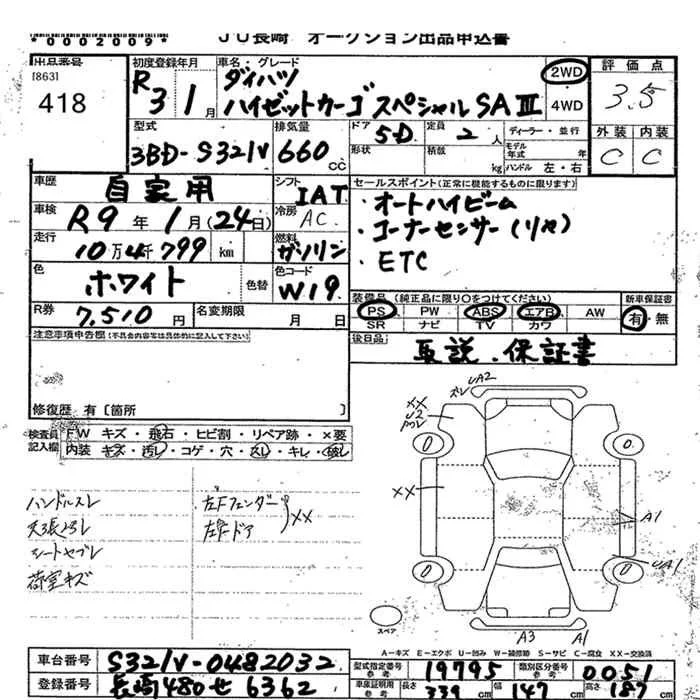 *0002009*
JU長崎 オークション出品申込書
出品番号
[863]
418
初度登録年月
R3 1月
車名・グレード
ダイハツ
ハイゼットカーゴ スペシャルSAⅢ
2WD
4WD
評価点
3.5
外装 内装
C C
型式
3BD-S321V
排気量
660 cc
ドア 5D
定員 2 人
形状
積載 kg
ディーラー・並行
モデル年式 年
ハンドル 左・右
車歴
自家用
シフト
IAT
セールスポイント(正常に機能するものに限ります)
・オートハイビーム
・コーナーセンサー(リヤ)
・ETC
車検
R9年1月(24日)
冷房
AC
走行
10万4千799 km
燃料
ガソリン
色
ホワイト
色替
色コード
W19
装備品(純正品に限り○をつけてください)
PS PW ABS エアB AW
SR ナビ TV カワ
新車保証書
有・無
R券
7,510円
名変期限
月 日
後日品
取説、保証書
注意事項申告欄(不具合内容等は具体的に記入して下さい)
修復歴 有〔箇所 〕
検査員記入欄
FW キズ・飛石・ヒビ割・リペア跡・×要
内装 キズ・汚レ・コゲ・穴・スレ・キレ・破レ
ハンドルスレ
天張ヨゴレ
シートヤブレ
荷室キズ
左Fフェンダー
左Fドア
XX
XX
U2
XX
UA2
ズレ
A1
UA1
A3
A1
スペア
A-キズ E-エクボ U-凹み W-補修跡 S-サビ C-腐食 XX-交換済
車台番号
S321V-0482032
登録番号
長崎480せ6362
型式指定番号
参考
19795
類別区分番号
参考
0051
車庫証明用
参考
長さ 339 cm
幅 147 cm
高さ 187 cm